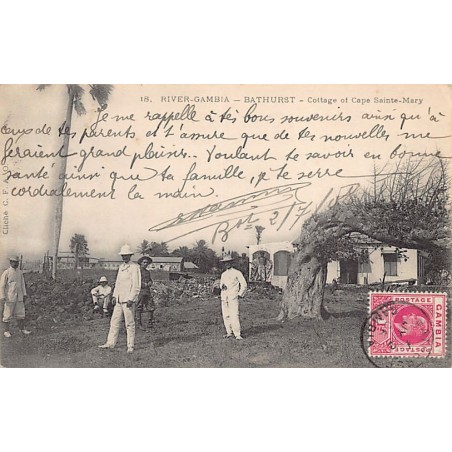 18. RIVER-GAMBIA — BATHURST - Cottage of Cape Sainte-Mary
Je me rappelle à tes bons souvenirs ainsi qu'à
ceux de tes parents et t'assure que de tes nouvelles me
feraient grand plaisir. Voulant te savoir en bonne
santé ainsi que ta famille, je te serre
cordialement la main.
Cliché C. F.
GAMBIA
POSTAGE